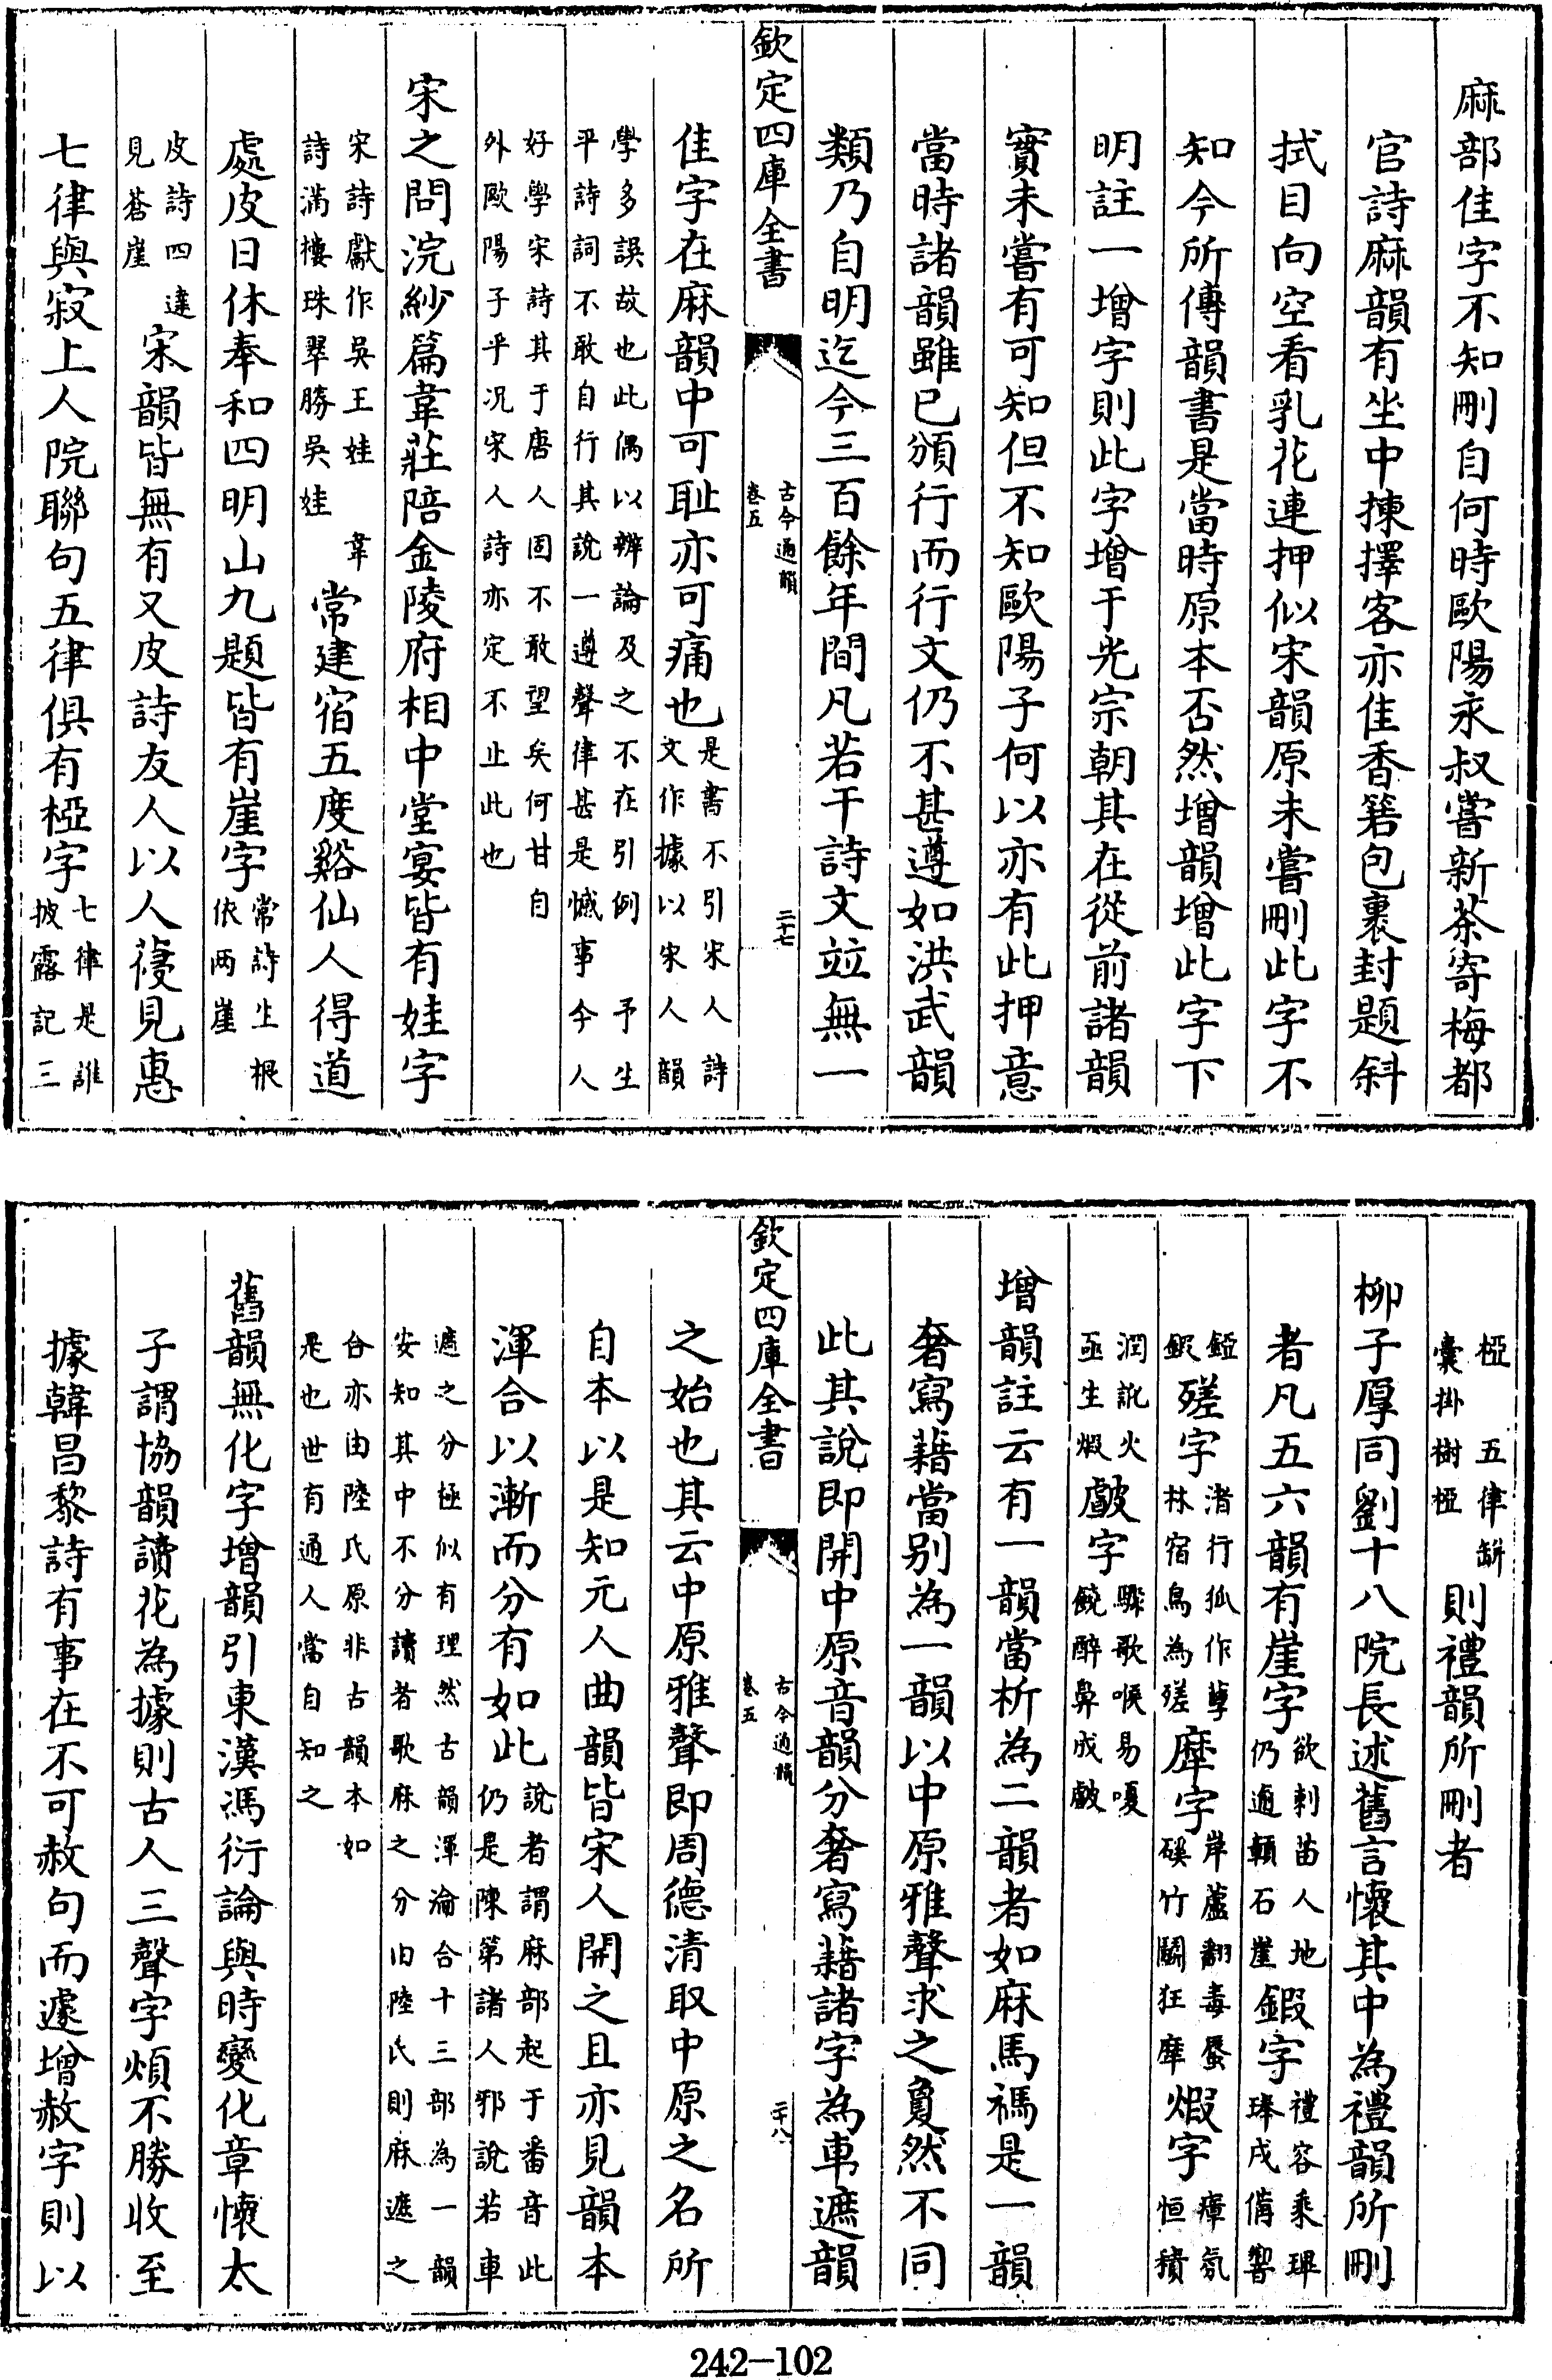 麻部佳字不知刪自何時歐陽永叔嘗新茶寄梅都
官詩麻韻有坐中揀擇客亦佳香篛包裹封題斜
拭目向空看乳花連押似宋韻原未嘗刪此字不
知今所傳韻書是當時原本否然增韻增此字下
明註一增字則此字增于光宗朝其在從前諸韻
實未嘗有可知但不知歐陽子何以亦有此押意
當時諸韻雖已頒行而行文仍不甚遵如洪武韻
類乃自明迄今三百餘年間凡若干詩文竝無一
欽定四庫全書 古今通韻 卷五 二十七
佳字在麻韻中可耻亦可痛也是書不引宋人詩
文作據以宋人韻
學多誤故也此偶以辨論及之不在引例 予生
平詩詞不敢自行其說一遵聲律甚是憾事今人
好學宋詩其于唐人固不敢望矣何甘自
外歐陽子乎况宋人詩亦定不止此也
宋之問浣紗篇韋莊陪金陵府相中堂宴皆有娃字
宋詩獻作吳王娃 韋
詩滿樓珠翠勝吳娃
常建宿五度谿仙人得道
處皮日休奉和四明山九題皆有崖字常詩生根
依兩崖
皮詩四達
見蒼崖
宋韻皆無有又皮詩友人以人葠見惠
七律與寂上人院聯句五律俱有椏字七律是誰
披露記三
椏 五律缾
囊掛樹椏
則禮韻所刪者
柳子厚同劉十八院長述舊言懷其中為禮韻所刪
者凡五六韻有崖字欲刺苗人地
仍逾贑石崖
鍜字禮容乘琕
琫戍備響
錏
鍜
㾨字渚行狐作孽
林宿鳥為㾨
㡜字岸蘆翻毒蜃
磎竹鬬狂㡜
煆字瘴氛
恒積
潤訛火
亟生煆
皻字驟歌喉易嗄
饒醉鼻成皻
增韻註云有一韻當析為二韻者如麻馬禡是一韻
奢寫藉當别為一韻以中原雅聲求之夐然不同
此其說即開中原音韻分奢寫藉諸字為車遮韻
欽定四庫全書 古今通韻 卷五 二十八
之始也其云中原雅聲即周德清取中原之名所
自本以是知元人曲韻皆宋人開之且亦見韻本
渾合以漸而分有如此說者謂麻部起于番音此
仍是陳第諸人邪說若車
遮之分極似有理然古韻渾淪合十三部為一韻
安知其中不分讀者歌麻之分由陸氏則麻遮之
合亦由陸氏原非古韻本如
是也世有通人當自知之
舊韻無化字增韻引東漢馮衍論與時變化章懷太
子謂協韻讀花為據則古人三聲字煩不勝收至
據韓昌黎詩有事在不可赦句而遽增赦字則以
242-102